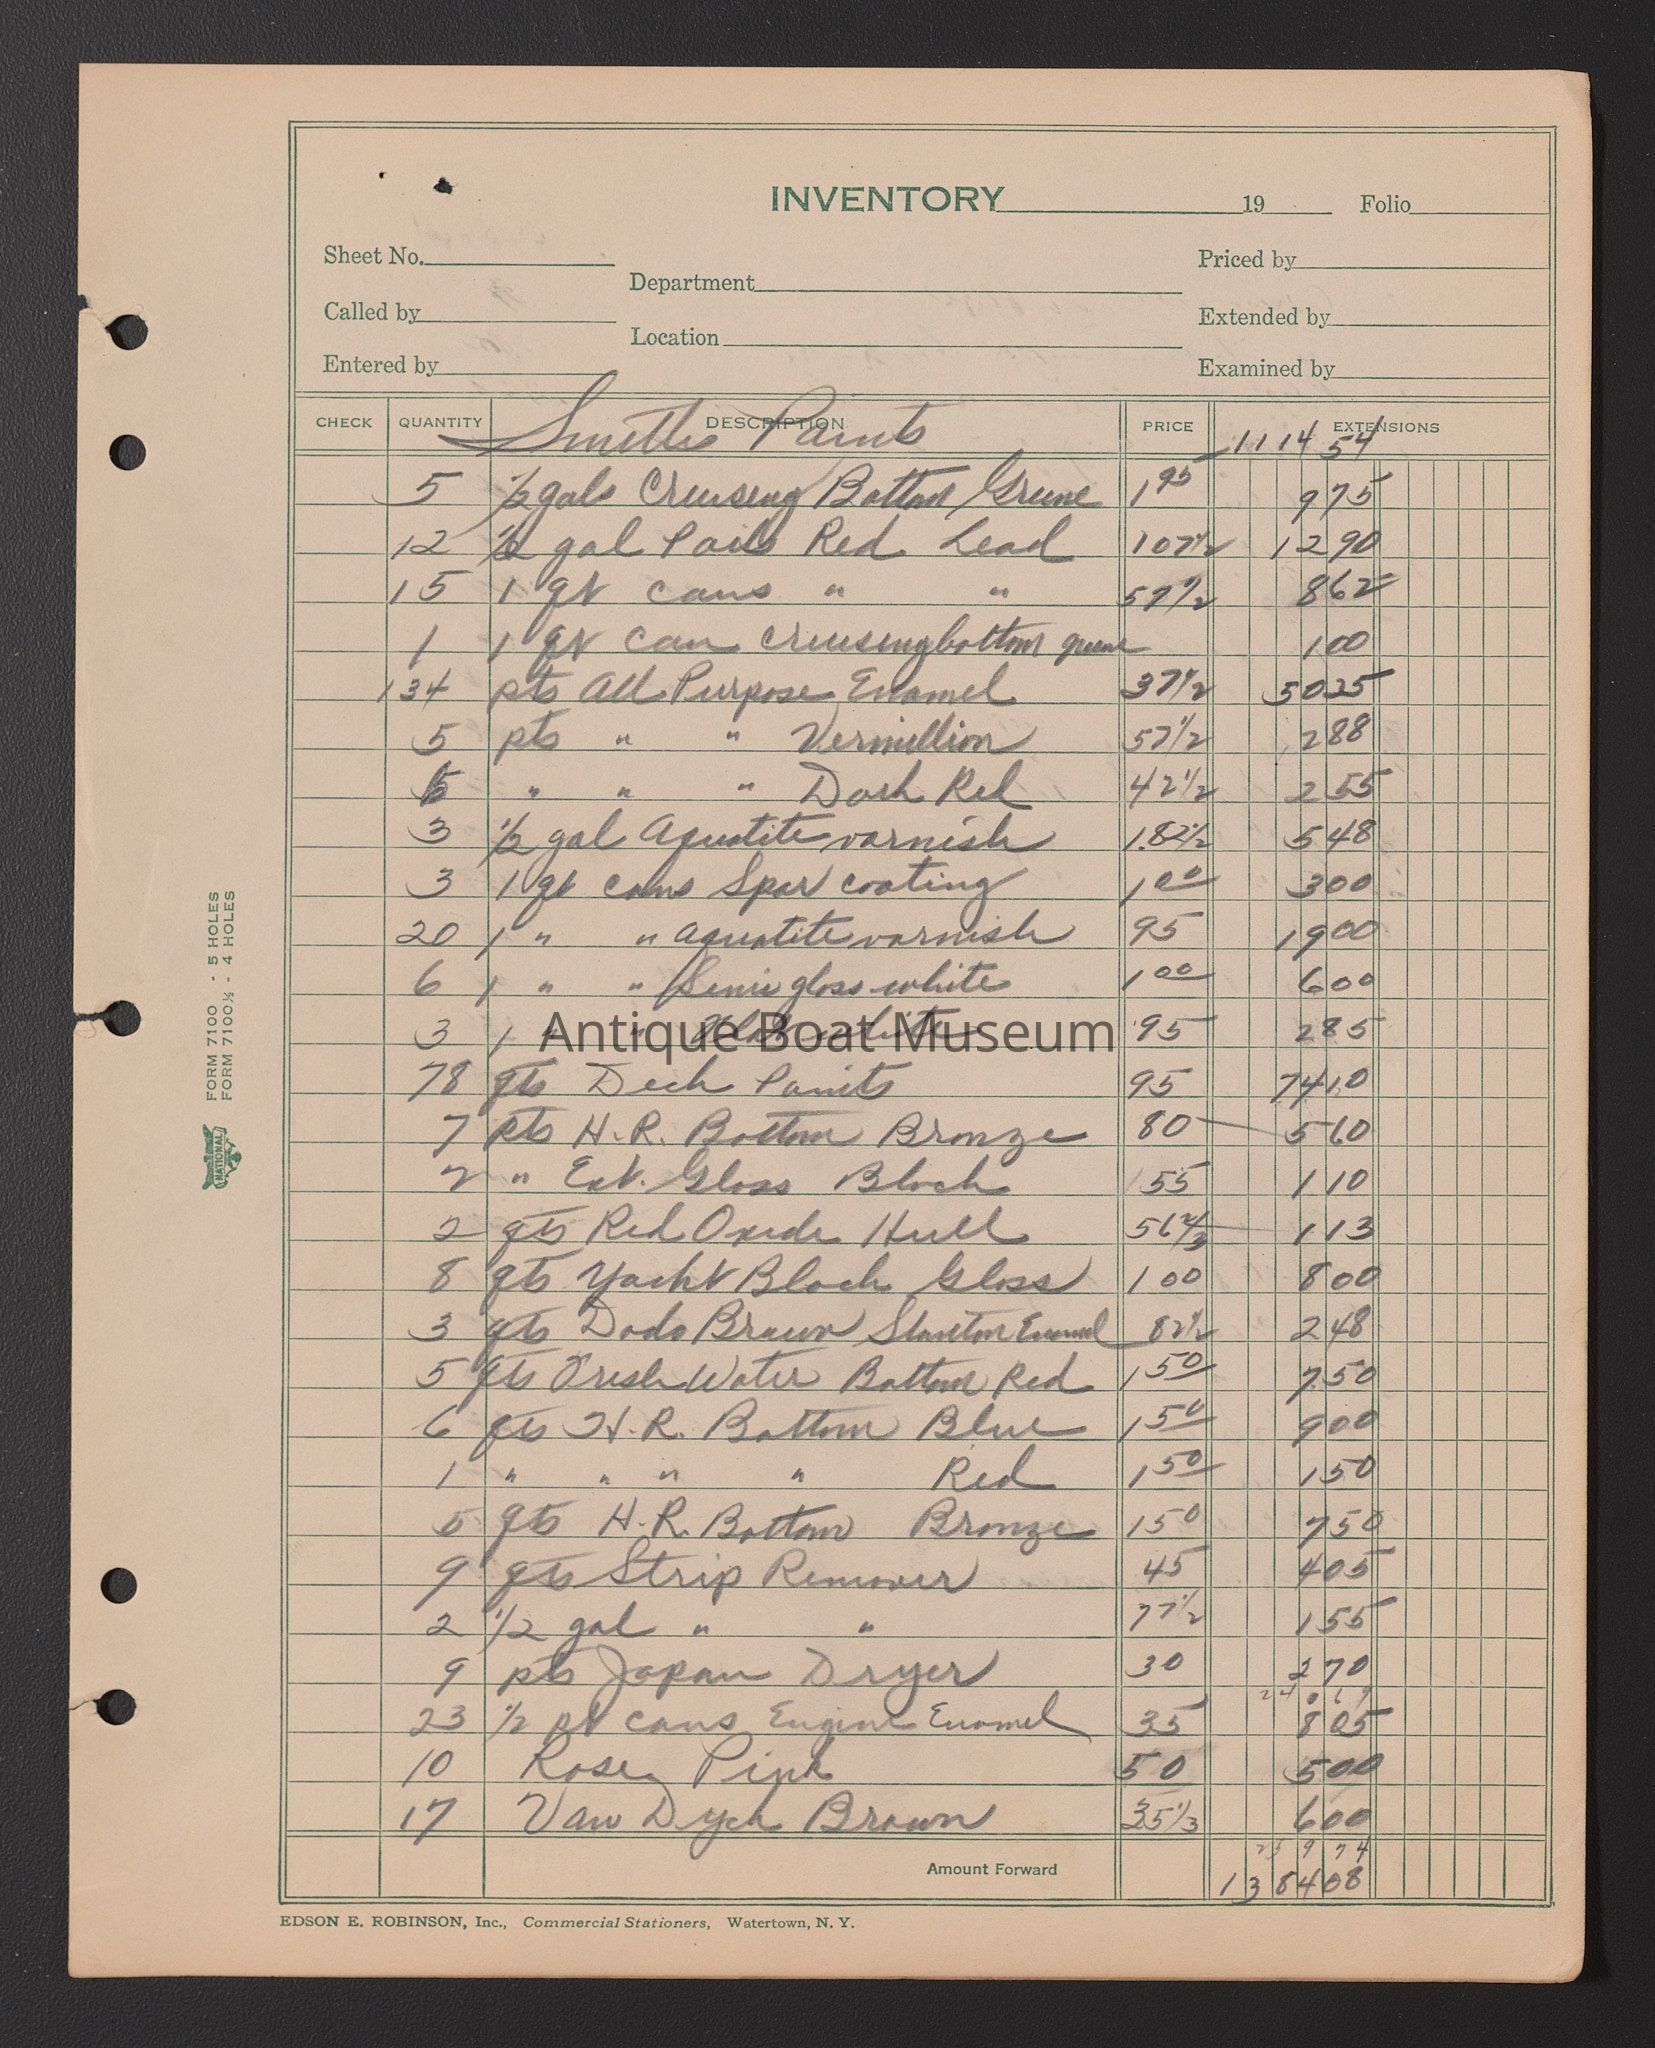 INVENTORY 19 Folio
Sheet No. Priced by
Department
Called by Extended by
Location
Entered by Examined by
CHECK QUANTITY DESCRIPTION PRICE EXTENSIONS
Smiths Paints 1114 54
5 1/2 gals Creusing Bottom Greene 1 95 975
12 1/2 gal Pails Red Lead 107 1/2 1290
15 1 qt cans " " 57 1/2 862
1 1 qt can creusing bottom greene 100
134 pts All Purpose Enamel 37 1/2 5025
5 pts " " Vermillion 57 1/2 288
6 " " " Dark Red 42 1/2 255
3 1/2 gal Aquatite varnish 1.82 1/2 548
3 1 qt cans Spar coating 1 00 300
20 1 " " aquatite varnish 95 1900
6 1 " " Semi gloss white 1 00 600
3 1 " " white 95 285
Antique Boat Museum
78 qts Deck Paints 95 7410
7 pts H.R. Bottom Bronze 80 560
2 " Ext. Gloss Black 55 110
2 qts Red Oxide Hull 56 1/3 113
8 qts Yacht Black Gloss 100 800
3 qts Dado Brown Stanton Enamel 82 1/2 248
5 qts Fresh Water Bottom Red 1 50 750
6 qts H.R. Bottom Blue 1 50 900
1 " " " " Red 1 50 150
5 qts H.R. Bottom Bronze 150 750
9 qts Strip Remover 45 405
2 1/2 gal " " 77 1/2 155
9 pts Japan Dryer 30 270
23 1/2 pt cans Engine Enamel 35 805
10 Rose Pink 50 500
17 Van Dyck Brown 35 1/3 600
Amount Forward 138408
EDSON E. ROBINSON, Inc., Commercial Stationers, Watertown, N. Y.
FORM 7100 - 5 HOLES
FORM 7100½ - 4 HOLES
NATIONAL